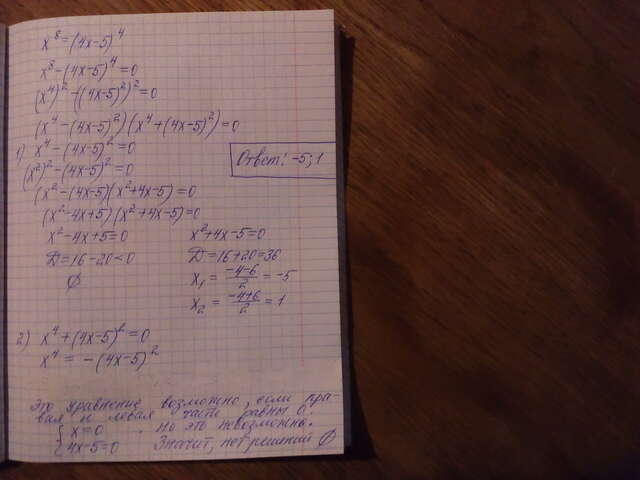 x⁸=(4x-5)⁴
x⁸-(4x-5)⁴=0
(x⁴)²-((4x-5)²)²=0
(x⁴-(4x-5)²)(x⁴+(4x-5)²)=0
1) x⁴-(4x-5)²=0
Ответ: -5; 1
(x²)²-(4x-5)²=0
(x²-(4x-5)(x²+4x-5)=0
(x²-4x+5)(x²+4x-5)=0
x²-4x+5=0 x²+4x-5=0
D=16-20<0 D=16+20=36
∅ x₁=(-4-6)/2=-5
x₂=(-4+6)/2=1
2) x⁴+(4x-5)²=0
x⁴=-(4x-5)²
Это уравнение возможно, если пра-
вая и левая части равны 0.
{x=0 . Но это невозможно.
{4x-5=0 Значит, нет решений ∅